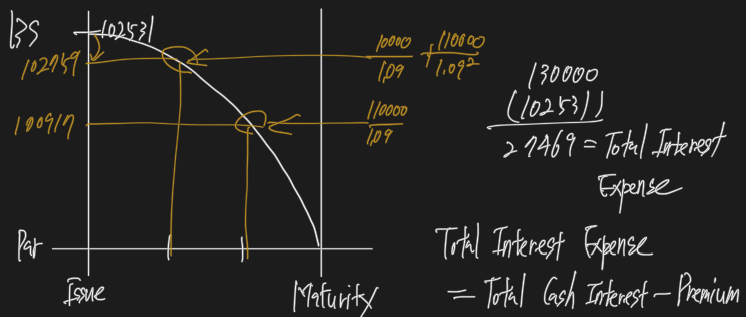 BS
102531
102759
100917
Par
Issue
Maturity
10000/1.09 + 110000/1.09²
110000/1.09
130000
(102531)
27469 = Total Interest Expense
Total Interest Expense
= Total Cash Interest - Premium